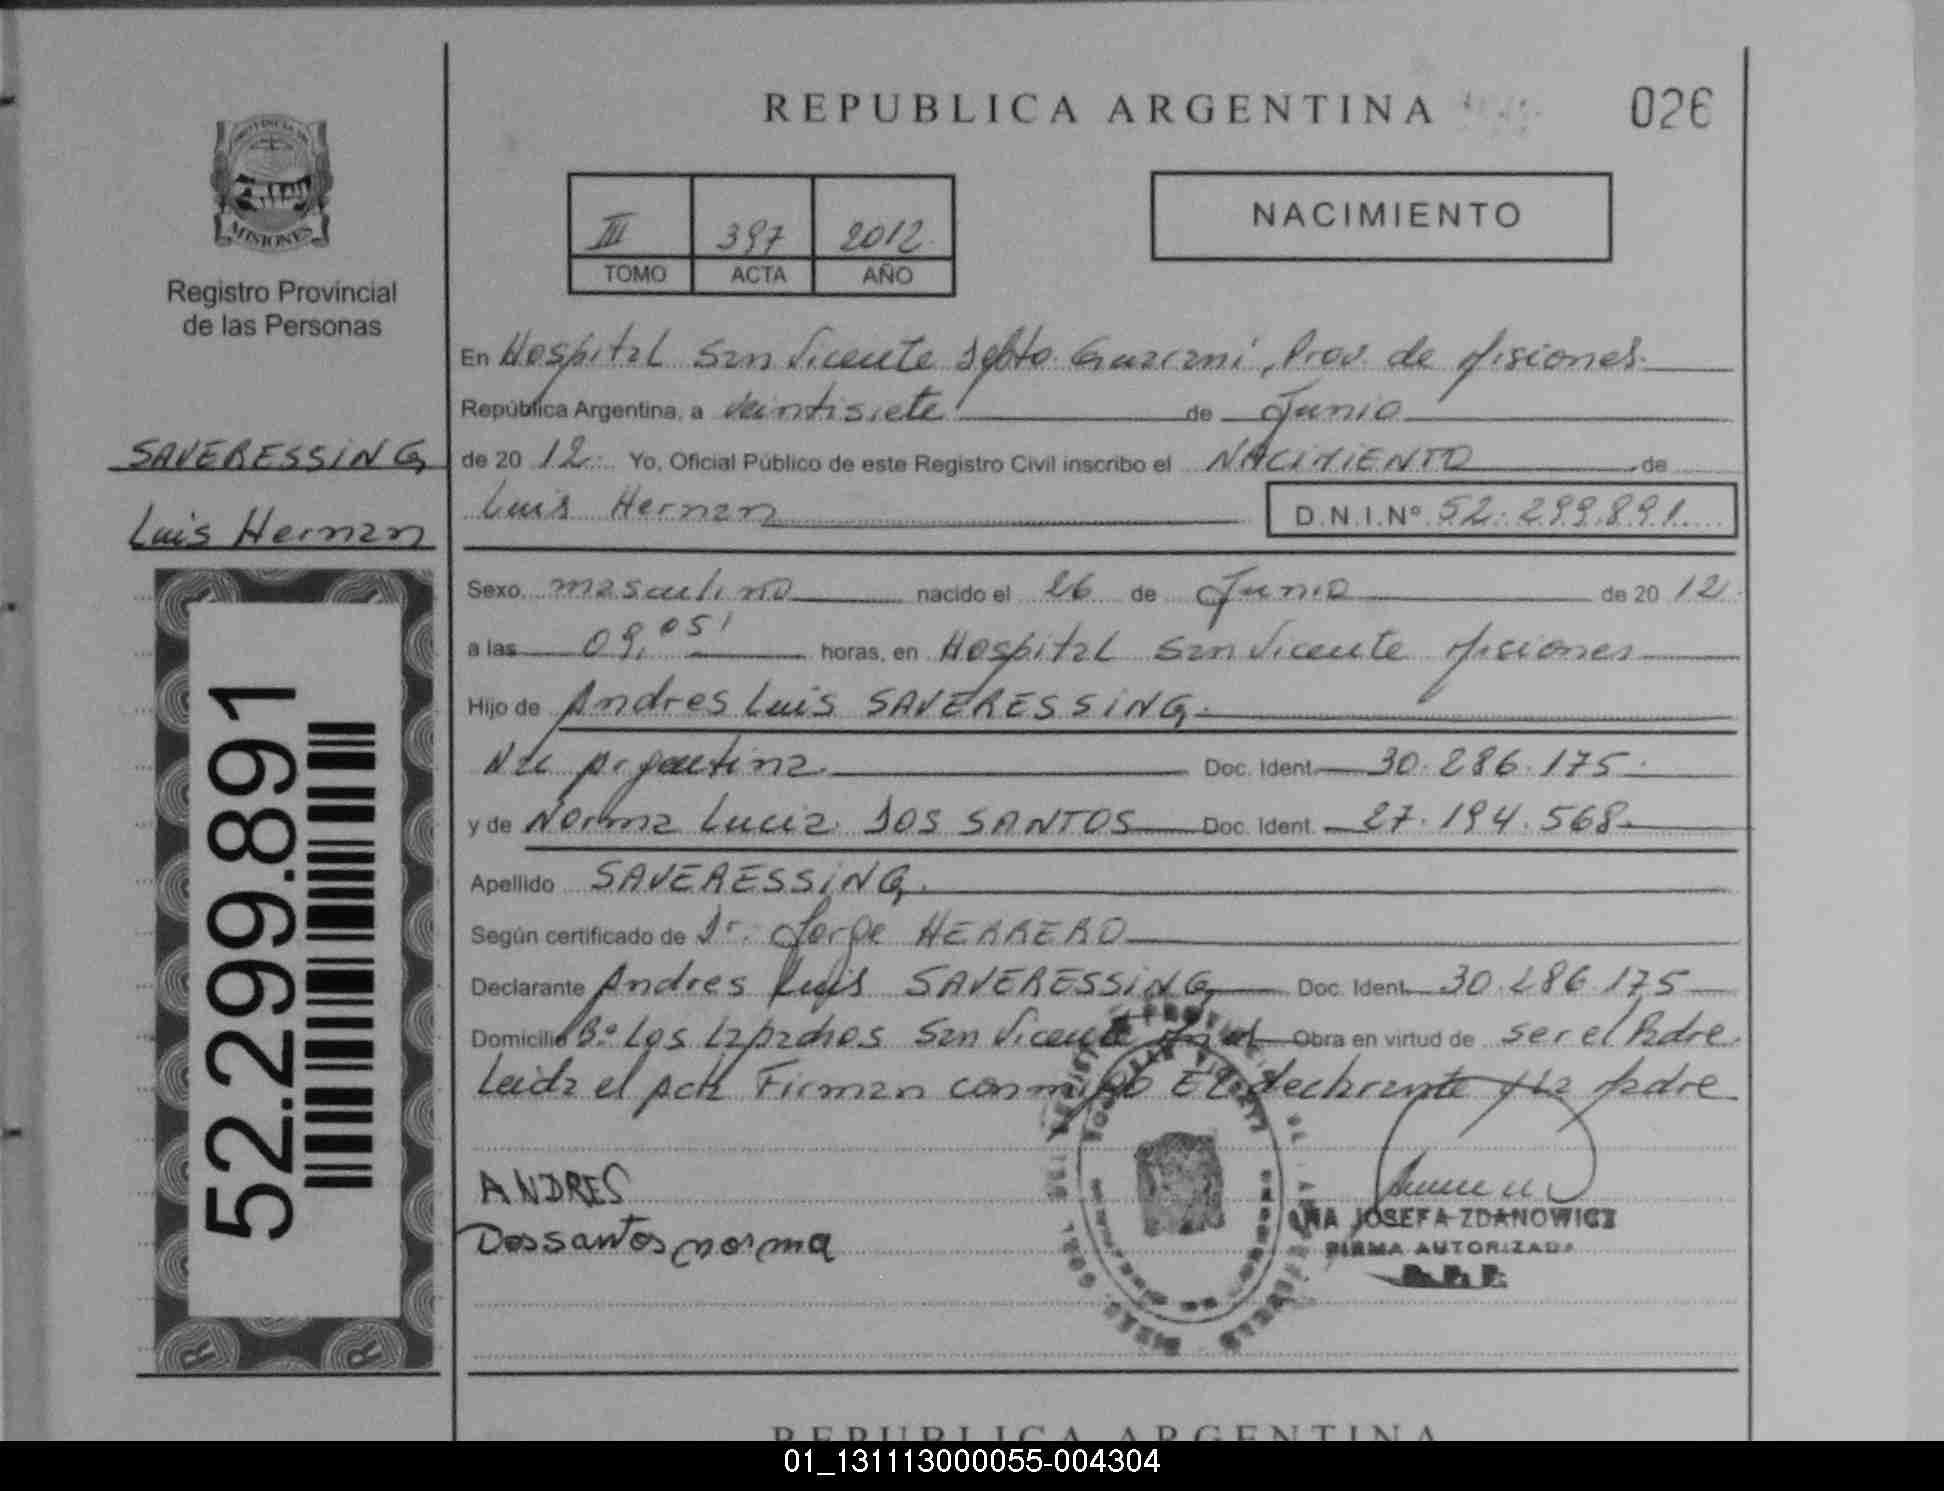 REPUBLICA ARGENTINA
026
PROVINCIA DE
MISIONES
Registro Provincial
de las Personas
III 397 2012
TOMO ACTA AÑO
NACIMIENTO
En Hospital San Vicente Depto. Guarani, Prov. de Misiones.
República Argentina, a veintisiete de Junio
de 20 12. Yo, Oficial Público de este Registro Civil inscribo el NACIMIENTO de
Luis Hernan D.N.I.Nº 52.299.891
SAVERESSiNG
Luis Hernan
52.299.891
R R
Sexo masculino nacido el 26 de Junio de 20 12
a las 09,05' horas, en Hospital San Vicente Misiones
Hijo de Andres Luis SAVERESSiNG
Nac Argentina. Doc. Ident. 30.286.175.
y de Norma Lucia DOS SANTOS Doc. Ident. 27.194.568
Apellido SAVERESSiNG.
Según certificado de Dr. Jorge HERRERO
Declarante Andres Luis SAVERESSiNG Doc. Ident. 30.286.175
Domicilio Bº Los Lapachos San Vicente Obra en virtud de ser el Padre.
Leida el Acta Firman conmigo El declarante y La Madre
ANDRES
Dossantos norma
ANA JOSEFA ZDANOWICZ
FIRMA AUTORIZADA
R.P.P.
REPUBLICA ARGENTINA
01_131113000055-004304